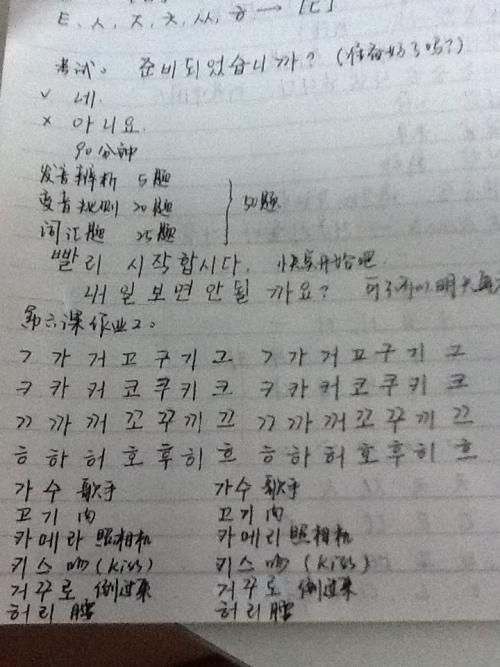 ㅌ, ㅅ, ㅈ, ㅊ, ㅆ, ㅎ → [ㄷ]
考试。 준비되었습니까? (准备好了吗?)
✓ 네.
× 아니요.
90分钟
发音辨析 5题
变音规则 20题
词汇题 25题
50题
빨리 시작합시다. 快点开始吧
내일보면안될까요? 可不可以明天
第六课作业2:
ㄱ 가 거 고 구 기 그 ㄱ 가 거 고 구 기 그
ㅋ 카 커 코 쿠 키 크 ㅋ 카 커 코 쿠 키 크
ㄲ 까 꺼 꼬 꾸 끼 끄 ㄲ 까 꺼 꼬 꾸 끼 끄
ㅎ 하 허 호 후 히 흐 ㅎ 하 허 호 후 히 흐
가수 歌手 가수 歌手
고기 肉 고기 肉
카메라 照相机 카메라 照相机
키스 吻(kiss) 키스 吻(kiss)
거꾸로 倒过来 거꾸로 倒过来
허리 腰 허리 腰